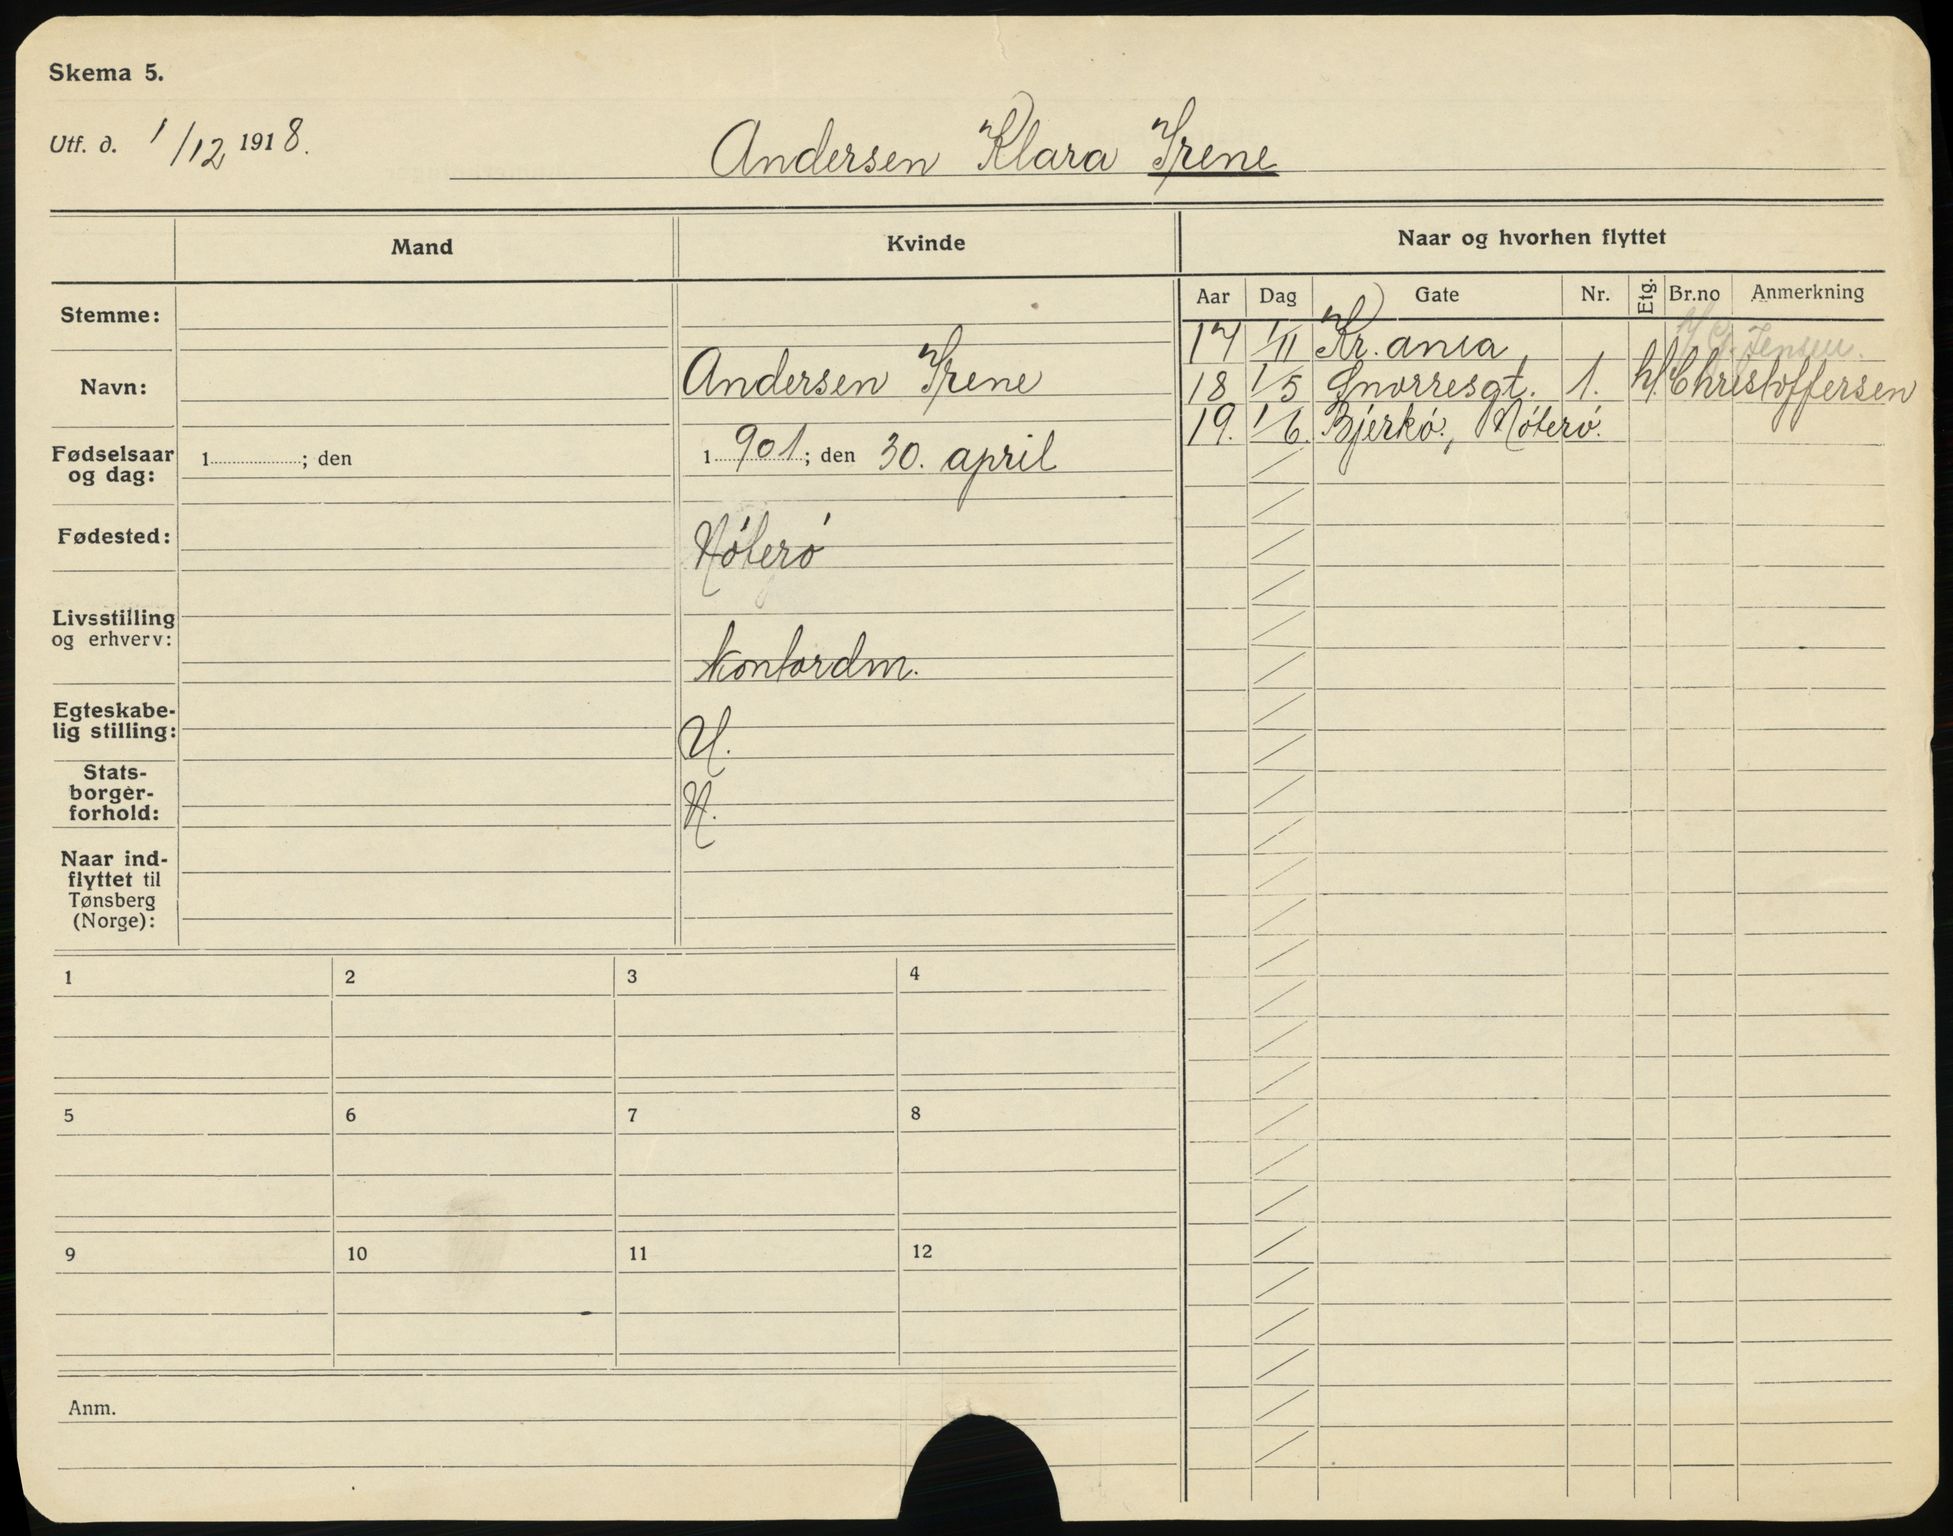 Skema 5.
Utf. d. 1/12 1918.
Andersen Klara Irene
Mand
Kvinde
Naar og hvorhen flyttet
Aar Dag Gate Nr. Etg. Br.no Anmerkning
Stemme:
Navn: Andersen Irene
Fødselsaar og dag: 1 ; den 1901; den 30. april
Fødested: Nóteró
Livsstilling og erhverv: kontordm.
Egteskabelig stilling: U.
Statsborgerforhold: N.
Naar indflyttet til Tønsberg (Norge):
17 1/11 Kr.ania h/ G. Jensen.
18 1/5 Snorresgt. 1. h/ Christoffersen
19. 1/6 Bjerkó, Nóteró.
1 2 3 4
5 6 7 8
9 10 11 12
Anm.